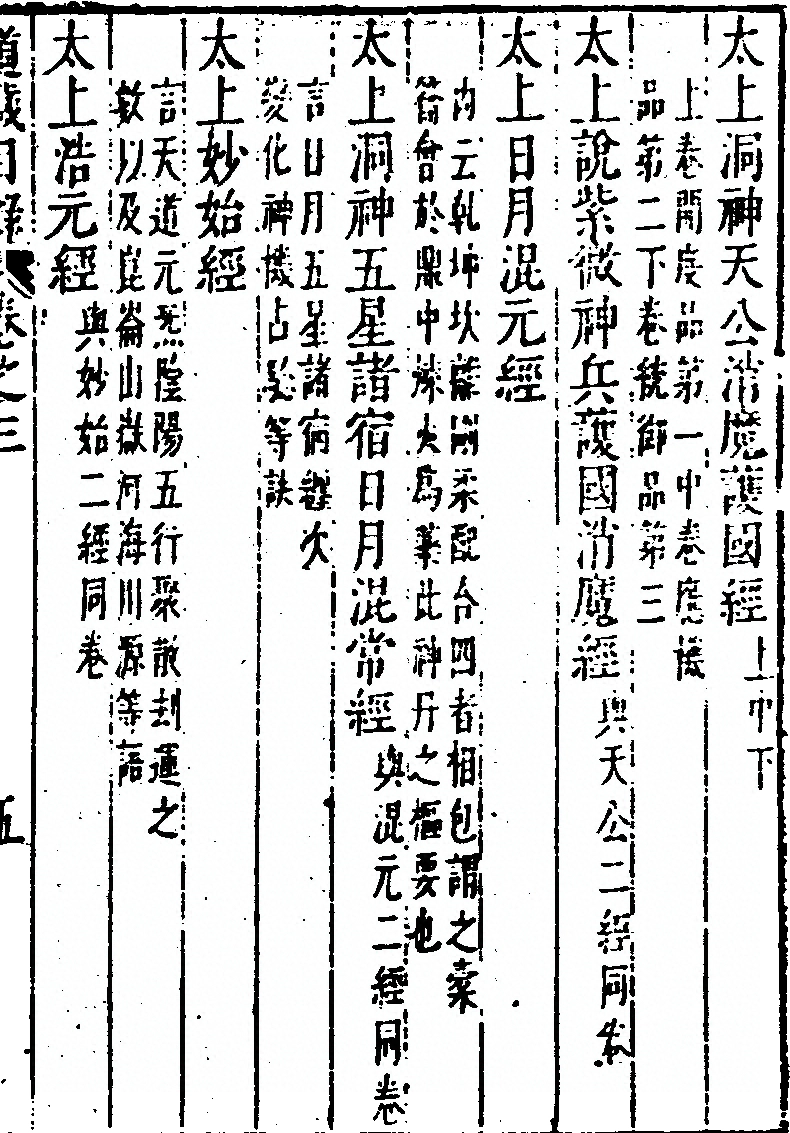 太上洞神天公消魔護國經上中下
上卷開度品第一中卷應機
品第二下卷統御品第三
太上說紫微神兵護國消魔經與天公二經同卷
太上日月混元經
內云乾坤坎離剛柔配合四者相包謂之橐
籥會於鼎中煉火為藥此神丹之樞要也
太上洞神五星諸宿日月混常經與混元二經同卷
言日月五星諸宿躔次
變化神機占候等訣
太上妙始經
言天道元炁陰陽五行聚散刦運之
數以及崑崙山嶽河海川源等語
太上浩元經與妙始二經同卷
道藏目錄卷之三
五